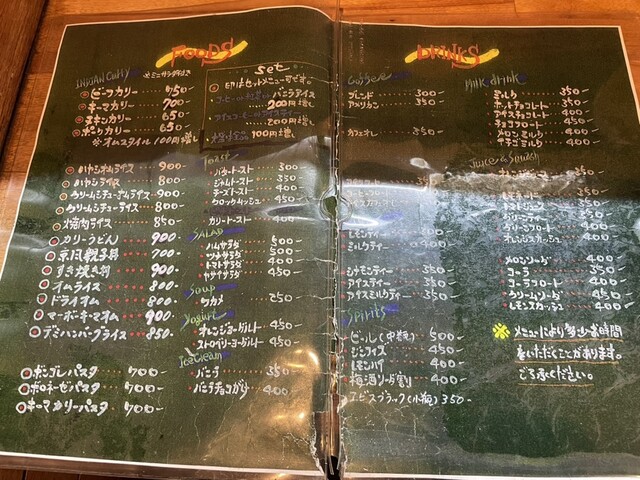 FOODS
INDIAN Curry ※ミニサラダ付き
ビーフカリー 750
キーマカリー 700
チキンカリー 650
ポークカリー 650
※オムスタイル 100円増し
Set
印はセットメニュー可です。
バニラアイス
200円増し
200円増し
100円増し
ハヤシオムライス 900
ハヤシライス 800
クリームシチューオムライス 900
クリームシチューライス 800
焼肉ライス 850
カリーうどん 900
京風親子丼 700
すき焼き丼 900
オムライス 800
ドライオム 800
マーボーキーマオム 900
デミハンバーグライス 850
ボンゴレパスタ 700
ボロネーゼパスタ 700
キーマカリーパスタ 700
Toast
バタートースト 300
ジャムトースト 350
チーズトースト 400
クロックムッシュ 450
カリートースト 400
SALAD
ハムサラダ 500
ツナサラダ 500
トマトサラダ 400
ヤサイサラダ 450
Soup
ワカメ 250
Yogurt
オレンジヨーグルト 450
ストロベリーヨーグルト 450
IceCream
バニラ 350
バニラチョコがけ 400
DRINKS
Coffee
ブレンド 300
アメリカン 350
カフェオレ 350
レモンティー
ミルクティー
シナモンティー 350
アイスティー 350
アイスミルクティー 350
Spirits
ビール(中瓶) 500
ジンフィズ 450
レモンハイ 400
梅酒ソーダ割り 400
エビスブラック(小瓶) 350
Milk drink
ミルク 350
ホットチョコレート 350
アイスチョコレート 400
チョコフロート 450
メロンミルク 400
イチゴミルク 400
Juice & Squash
350
トマトジュース 350
グリーンティー 350
グリーンフロート 400
オレンジスカッシュ 400
メロンソーダ 400
コーラ 350
コーラフロート 400
クリームソーダ 450
レモンスカッシュ 400
メニューにより多少お時間
をいただくことがあります。
ご了承ください。